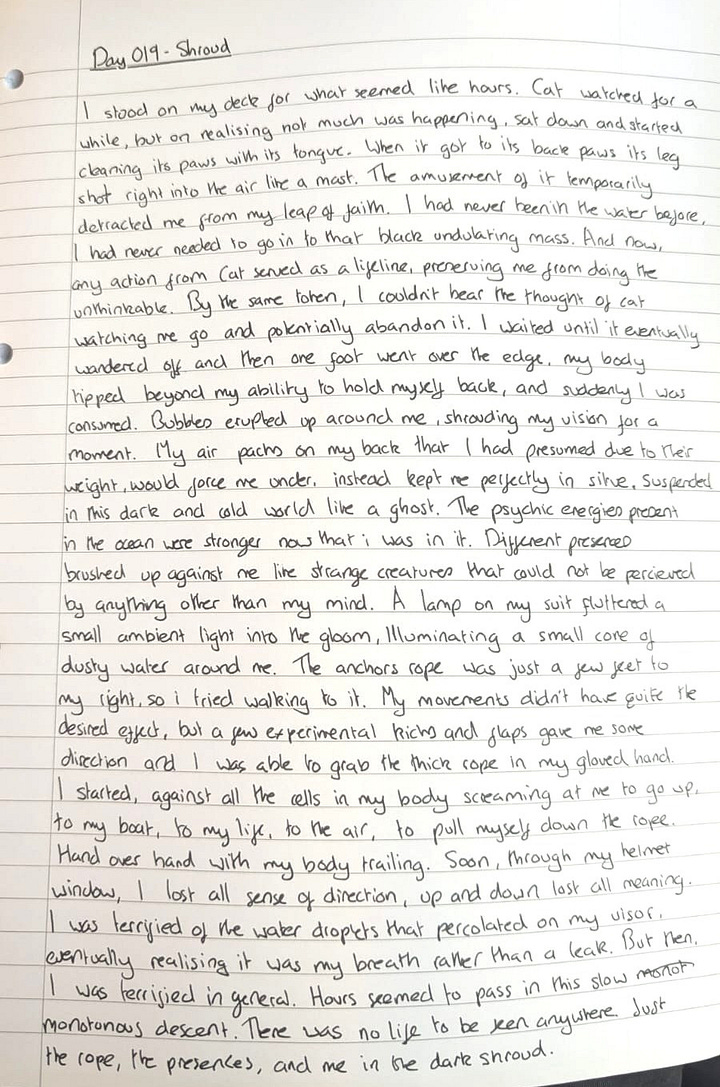 Day 019 - Shroud
I stood on my deck for what seemed like hours. Cat watched for a
while, but on realising not much was happening, sat down and started
cleaning its paws with its tongue. When it got to its back paws its leg
shot right into the air like a mast. The amusement of it temporarily
detracted me from my leap of faith. I had never been in the water before,
I had never needed to go in to that black undulating mass. And now,
any action from Cat served as a lifeline, preserving me from doing the
unthinkable. By the same token, I couldn't bear the thought of cat
watching me go and potentially abandon it. I waited until it eventually
wandered off and then one foot went over the edge, my body
tipped beyond my ability to hold myself back, and suddenly I was
consumed. Bubbles erupted up around me, shrouding my vision for a
moment. My air packs on my back that I had presumed due to their
weight, would force me under, instead kept me perfectly in situe. Suspended
in this dark and cold world like a ghost. The psychic energies present
in the ocean were stronger now that i was in it. Different presences
brushed up against me like strange creatures that could not be percieved
by anything other than my mind. A lamp on my suit fluttered a
small ambient light into the gloom, Illuminating a small cone of
dusty water around me. The anchors rope was just a few feet to
my right, so i tried walking to it. My movements didn't have quite the
desired effect, but a few experimental kicks and flaps gave me some
direction and I was able to grab the thick rope in my gloved hand.
I started, against all the cells in my body screaming at me to go up,
to my boat, to my life, to the air, to pull myself down the rope.
Hand over hand with my body trailing. Soon, through my helmet
window, I lost all sense of direction, up and down lost all meaning.
I was terrified of the water droplets that percolated on my visor,
eventually realising it was my breath rather than a leak. But then,
I was terrified in general. Hours seemed to pass in this slow monot
monotonous descent. There was no life to be seen anywhere. Just
the rope, the presences, and me in the dark shroud.